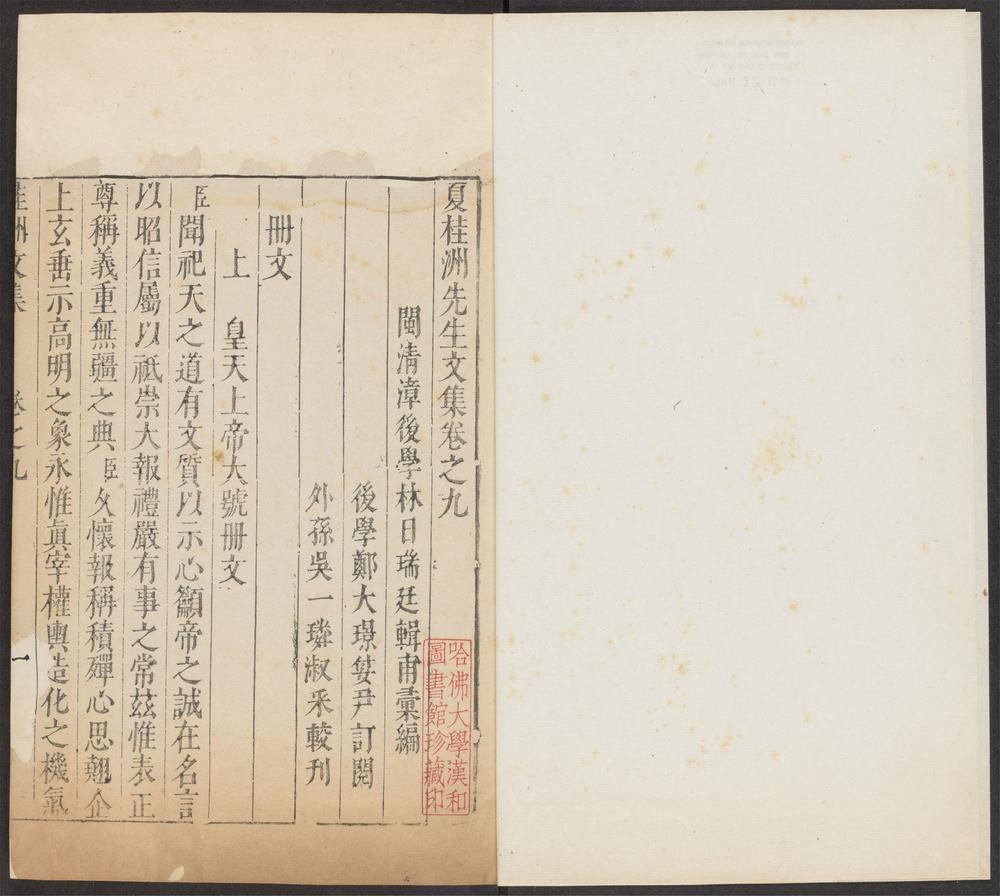 夏桂洲先生文集卷之九
閩清漳後學林日瑞廷輯甫彙編
後學鄭大璟䇓尹訂閱
外孫吳一璘淑釆較刋
冊文
上　皇天上帝大號冊文
臣聞祀天之道有文質以示心籲帝之誠在名言
以昭信屬以祗崇大報禮嚴有事之常茲惟表正
尊稱義重無疆之典臣久懷報稱積殫心思翹企
上玄垂示高明之象永惟眞宰權輿造化之機氣
桂洲文集　卷之九　一
哈佛大學漢和
圖書館珍藏印